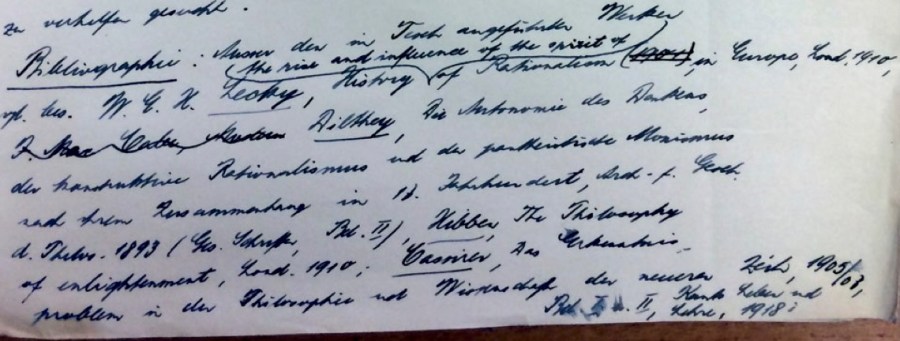 zu verhelfen gesucht.
Bibliographie: Ausser den in Text angeführten Werken
the rise and influence of the spirit of
vgl. bes. W. E. H. Lecky, History of Rationalism (1904), in Europe, Lond. 1910,
Dilthey, Die Autonomie des Denkens,
der konstruktive Rationalismus und der pantheistische Monismus
nach ihrem Zusammenhang im 17. Jahrhundert, Arch. f. Gesch.
d. Philos. 1893 (Ges. Schriften, Bd. II), Hibben, The Philosophy
of enlightenment, Lond. 1910; Cassirer, Das Erkenntnis-
problem in der Philosophie und Wissenschaft der neueren Zeit, 1905/08,
Bd. I u. II, Kants Leben und
Lehre, 1918;